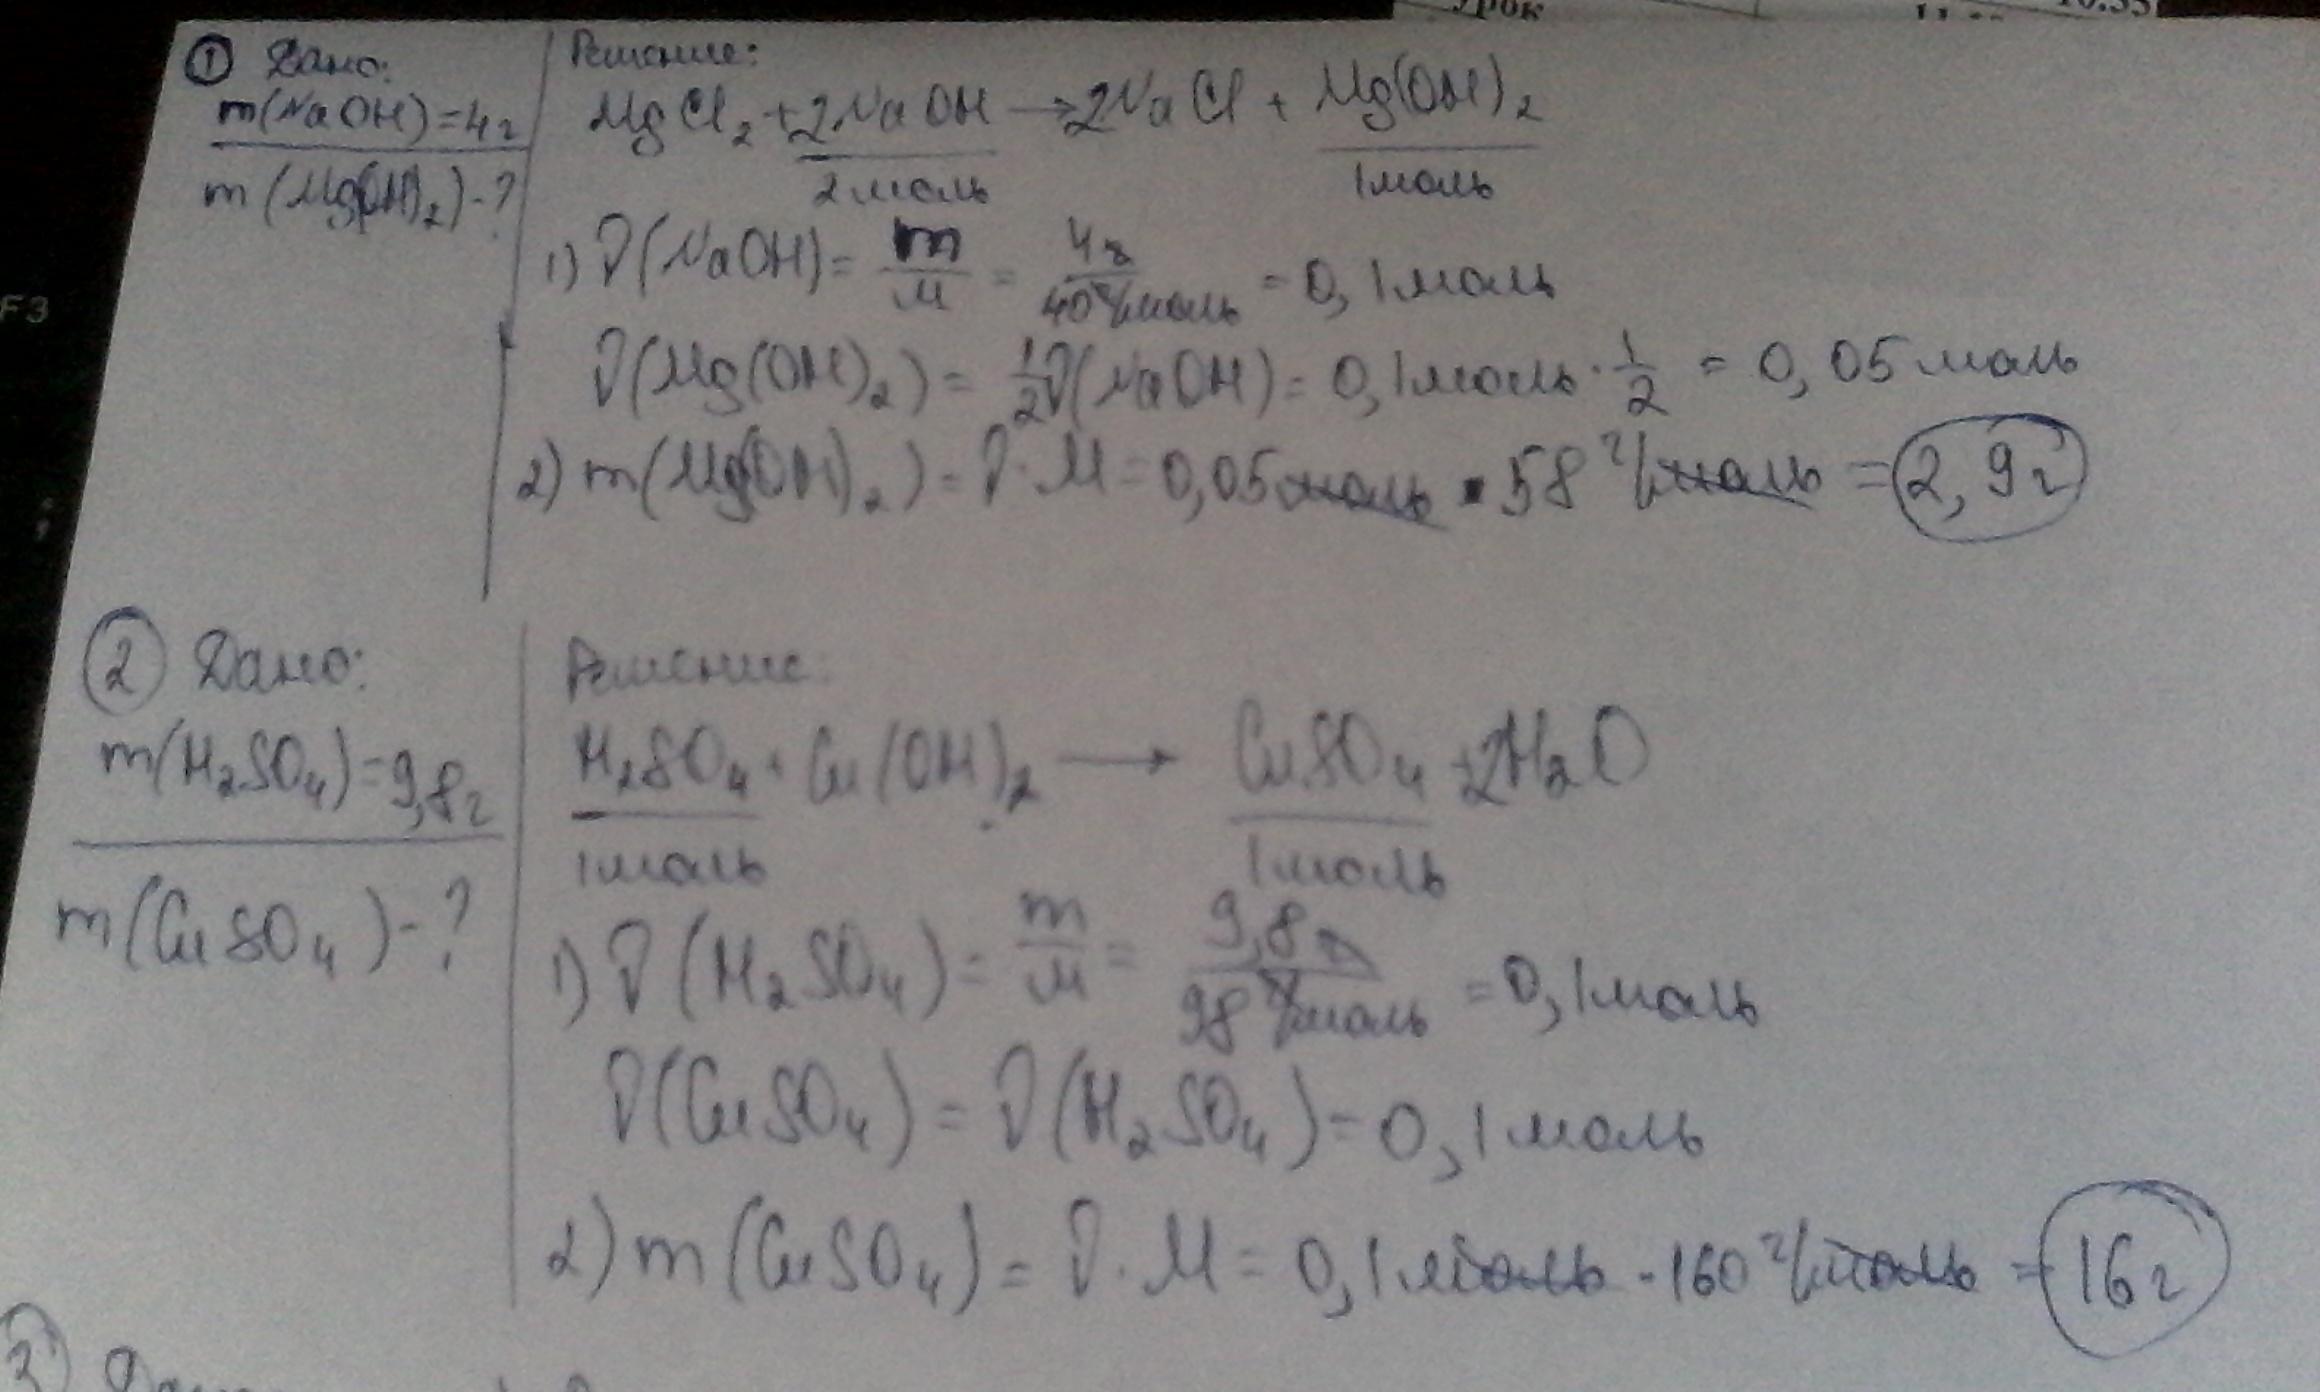 Урок
10.35
F3
① Дано:
m(NaOH)=4г
m(Mg(OH)₂)-?
Решение:
MgCl₂+2NaOH→2NaCl+Mg(OH)₂
2моль 1моль
1) ν(NaOH)=m/M=4г/40г/моль=0,1моль
ν(Mg(OH)₂)=1/2ν(NaOH)=0,1моль·1/2=0,05моль
2) m(Mg(OH)₂)=ν·M=0,05моль·58г/моль=2,9г
② Дано:
m(H₂SO₄)=9,8г
m(CuSO₄)-?
Решение:
H₂SO₄+Cu(OH)₂→CuSO₄+2H₂O
1моль 1моль
1) ν(H₂SO₄)=m/M=9,8г/98г/моль=0,1моль
ν(CuSO₄)=ν(H₂SO₄)=0,1моль
2) m(CuSO₄)=ν·M=0,1моль·160г/моль=16г